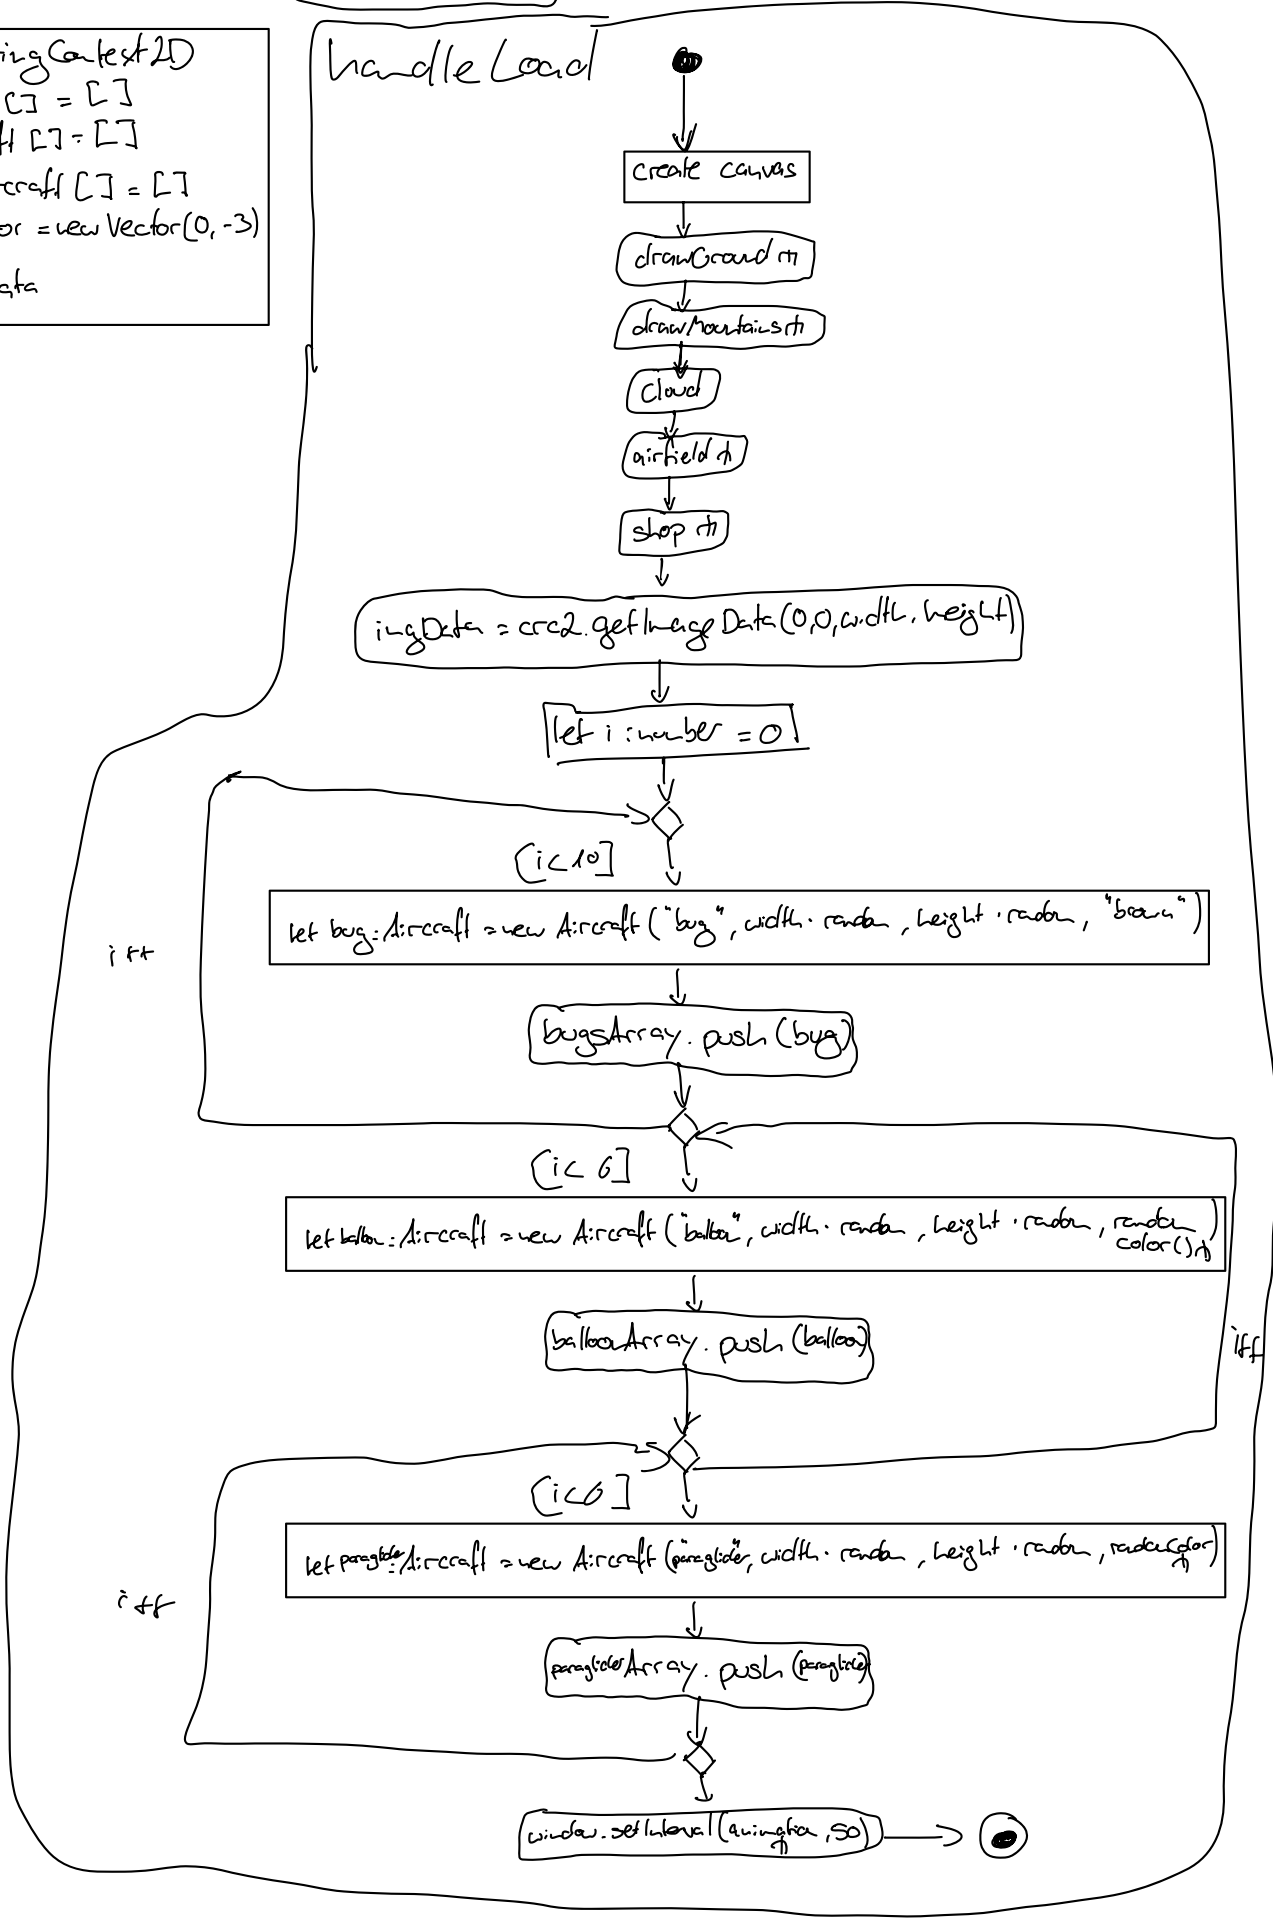 ingContext2D
[] = []
ft [] = []
rcraft [] = []
or = new Vector(0, -3)
ata
handleLoad
create canvas
drawGround
drawMountains
Cloud
airfield
shop
imgData = crc2.getImageData(0,0,width, height)
let i : number = 0
[i<10]
let bug: Aircraft = new Aircraft ("bug", width · random, height · random, "brown")
i++
bugsArray.push (bug)
[i< 6]
let balloon: Aircraft = new Aircraft ("balloon", width · random, height · random, random color())
balloonArray.push (balloon)
i++
[i<6]
let paraglider: Aircraft = new Aircraft ("paraglider", width · random, height · random, randomColor)
i++
paragliderArray.push (paraglider)
window.setInterval (animation, 50)